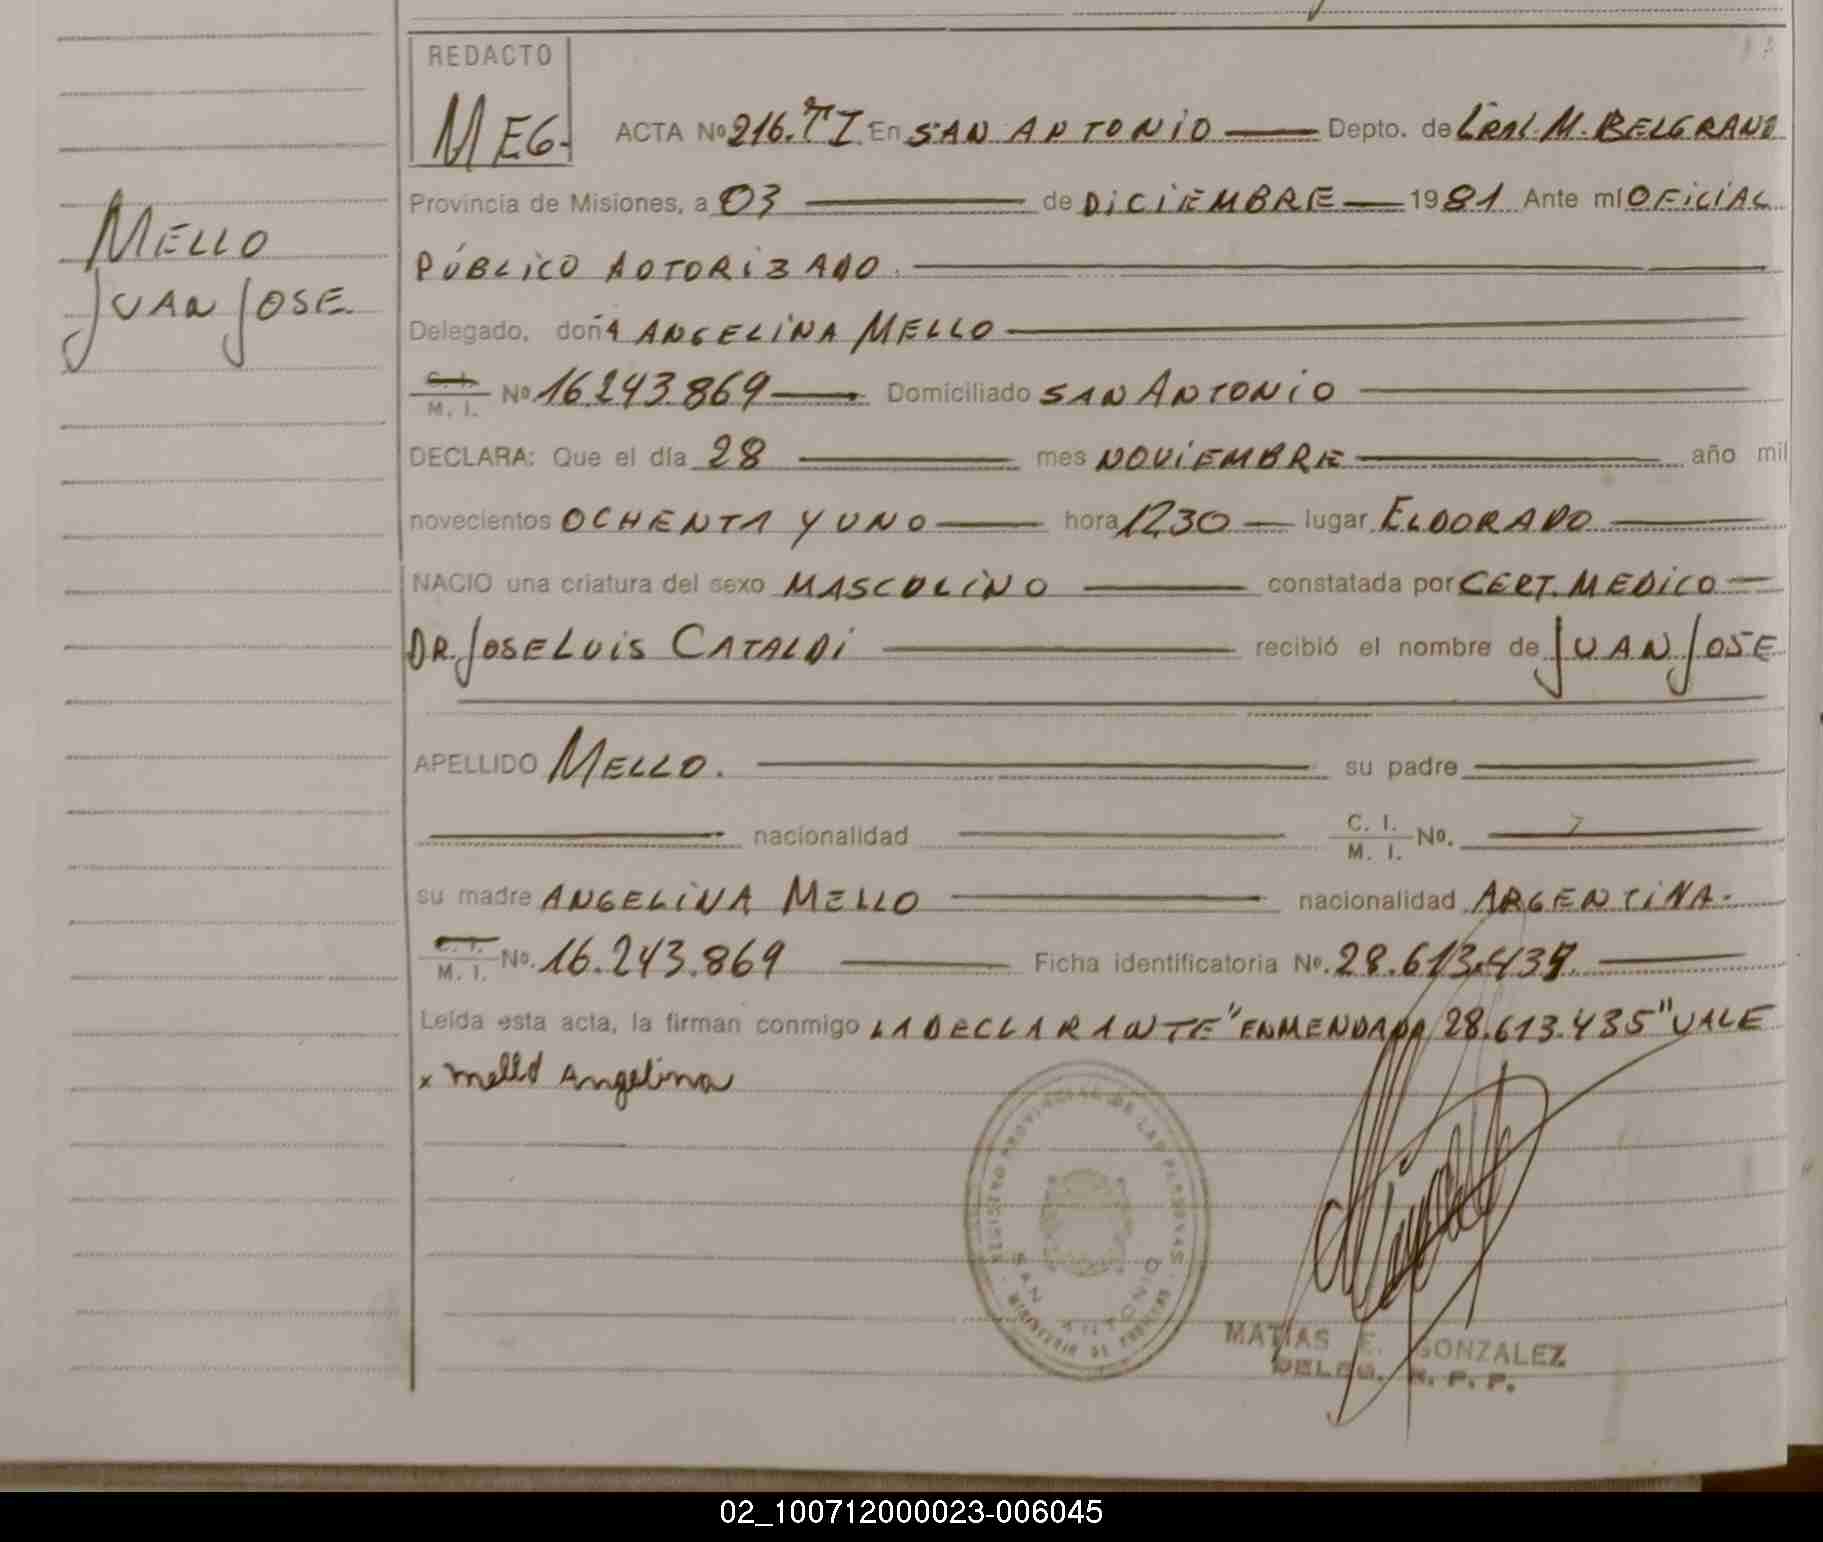 REDACTO
MEG.
ACTA Nº 216. TI En SAN ANTONIO Depto. de GRAL. M. BELGRANO
Provincia de Misiones, a 03 de DICIEMBRE 1981 Ante mí OFICIAL
PÚBLICO AUTORIZADO.
MELLO
JUAN JOSE
Delegado, doña ANGELINA MELLO
C. I.
M. I. Nº 16.243.869 Domiciliado SAN ANTONIO
DECLARA: Que el día 28 mes NOVIEMBRE año mil
novecientos OCHENTA Y UNO hora 1230 lugar ELDORADO
NACIO una criatura del sexo MASCULINO constatada por CERT. MEDICO
DR. JOSE LUIS CATALDI recibió el nombre de JUAN JOSE
APELLIDO MELLO. su padre
nacionalidad C. I.
M. I. Nº.
su madre ANGELINA MELLO nacionalidad ARGENTINA.
C. I.
M. I. Nº. 16.243.869 Ficha identificatoria Nº. 28.613.435
Leída esta acta, la firman conmigo LA DECLARANTE "ENMENDADA 28.613.435" VALE
x Mello Angelina
REGISTRO PROVINCIAL DE LAS PERSONAS
SAN ANTONIO
MATIAS E. GONZALEZ
DELEG. R. P. P.
02_100712000023-006045